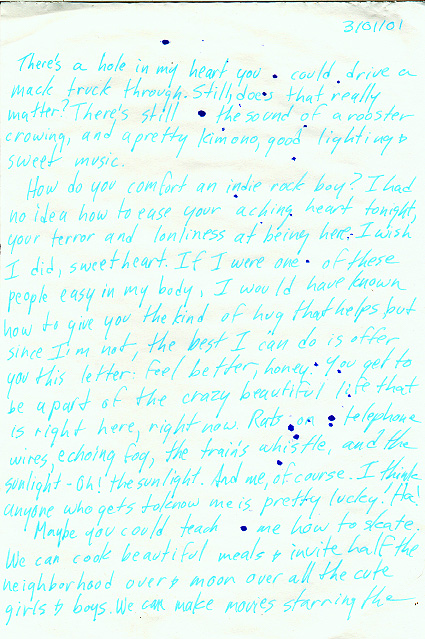 3/01/01
There's a hole in my heart you could drive a
mack truck through. Still does that really
matter? There's still the sound of a rooster
crowing, and a pretty kimono, good lighting &
sweet music.
How do you comfort an indie rock boy? I had
no idea how to ease your aching heart tonight,
your terror and lonliness at being here. I wish
I did, sweetheart. If I were one of these
people easy in my body, I would have known
how to give you the kind of hug that helps but
since I'm not, the best I can do is offer
you this letter: feel better, honey. You get to
be a part of the crazy beautiful life that
is right here, right now. Rats on telephone
wires, echoing fog, the train's whistle, and the
sunlight - Oh! the sunlight. And me, of course. I think
anyone who gets to know me is pretty lucky! Ha!
Maybe you could teach me how to skate.
We can cook beautiful meals & invite half the
neighborhood over & moon over all the cute
girls & boys. We can make movies starring the